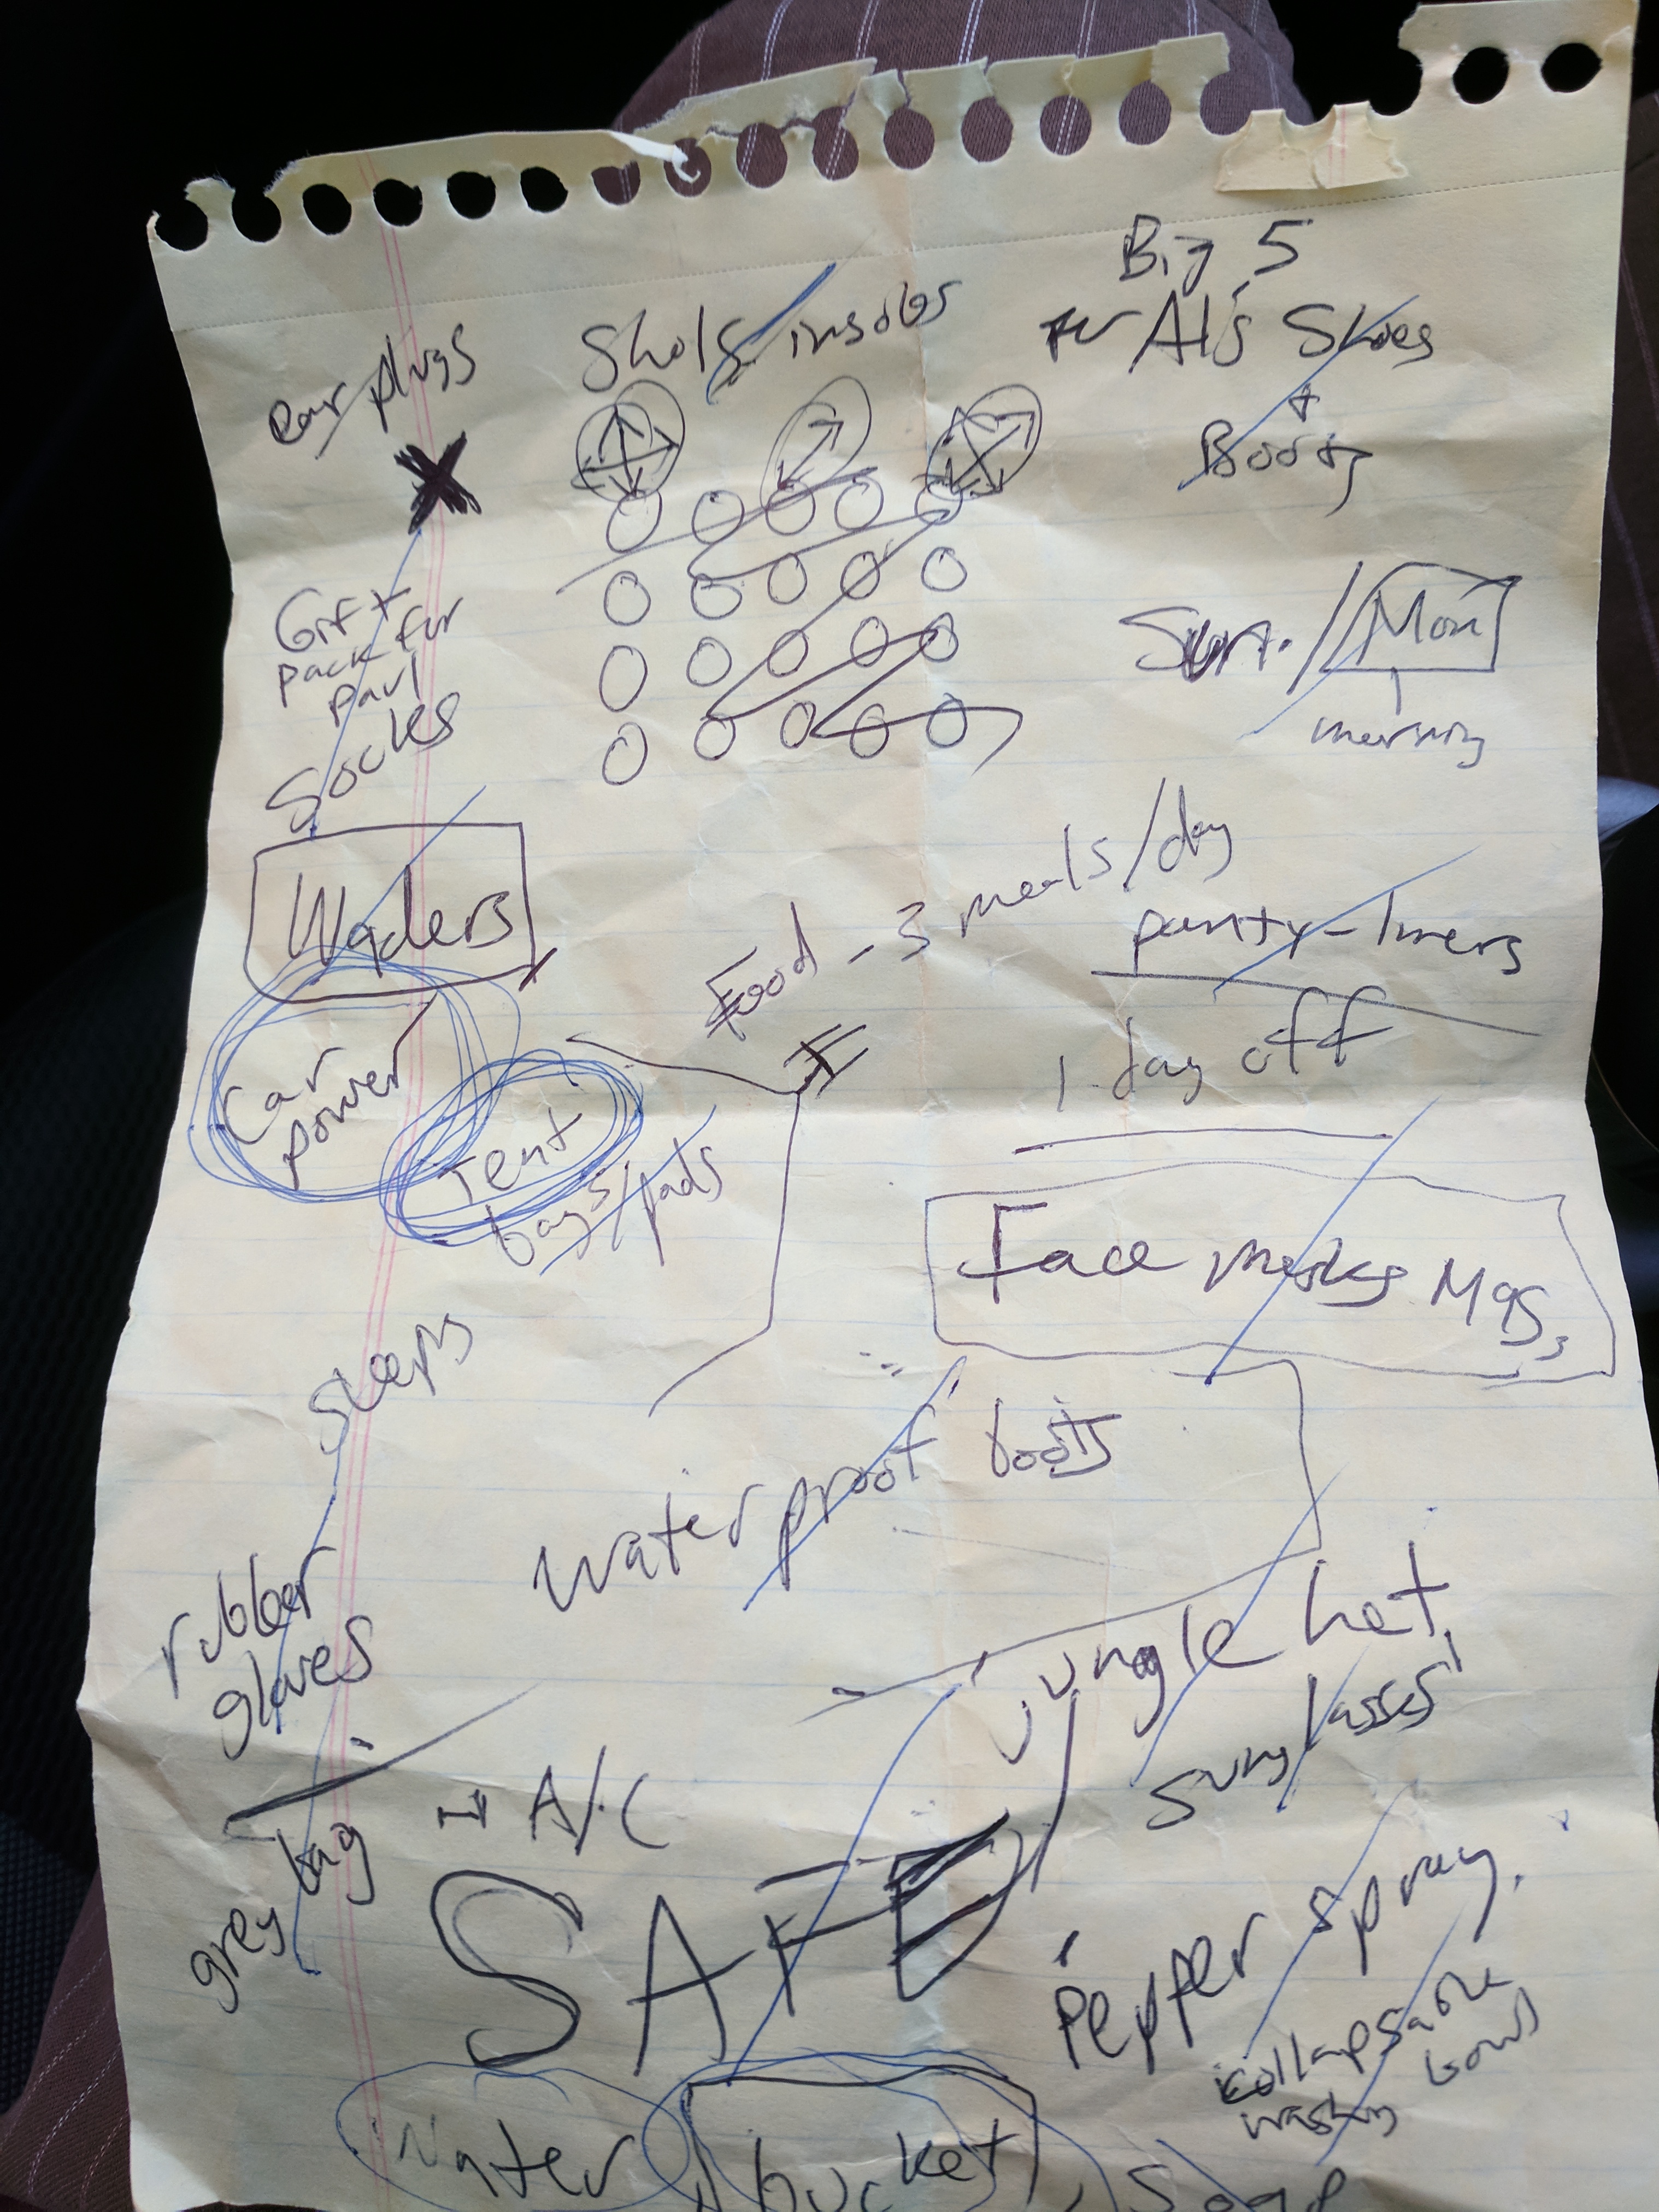 Big 5
Al's Shoes
+
Boots
ear plugs
Shols insoles
X
Gift
pack for
paul
Socks
/ Mon
morning
Waders
Food - 3 meals/day
panty-liners
1 day off
Car
power
Tent
bags/pads
Face masks M95s
Sleeps
waterproof boots
rubber
gloves
jungle hat,
sunglasses
A/C
grey bag
SAFE
Pepper spray.
collapsable
washing bowl
Water
bucket, Soap